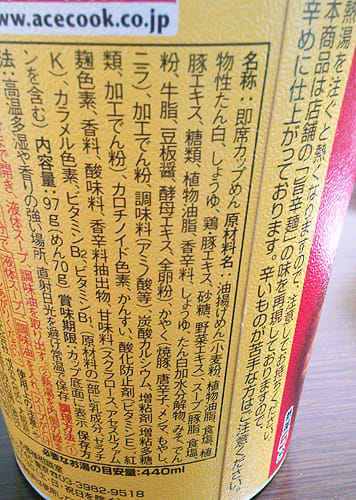 www.acecook.co.jp
熱湯を注ぐと熱くなりますので、注意してお持ちください。
本商品は店舗の「旨辛麺」の味を再現しておりますので、
辛めに仕上がっております。辛いものが苦手な方はご注意ください。
名称:即席カップめん 原材料名:油揚げめん(小麦粉、植物油脂、食塩、植
物性たん白、しょうゆ、鶏・豚エキス、砂糖、野菜エキス)、スープ(豚脂、食塩、
豚エキス、糖類、植物油脂、香辛料、しょうゆ、たん白加水分解物、みそ、でん
粉、牛脂、豆板醤、酵母エキス、全卵粉)、かやく(焼豚、唐辛子、メンマ、もやし、
ニラ)、加工でん粉、調味料(アミノ酸等)、炭酸カルシウム、増粘剤(増粘多糖
類、加工でん粉)、カロチノイド色素、かんすい、酸化防止剤(ビタミンE)、紅
麹色素、香料、酸味料、香辛料抽出物、甘味料(スクラロース、アセスルファム
K)、カラメル色素、ビタミンB2、ビタミンB1、(原材料の一部に乳成分、ゼラチ
ンを含む) 内容量:97g(めん70g) 賞味期限:カップ底面に表示 保存方
法:高温多湿や香りの強い場所、直射日光を避け常温で保存 調理方法:①
必要なお湯の目安量:440ml
03-3982-9518